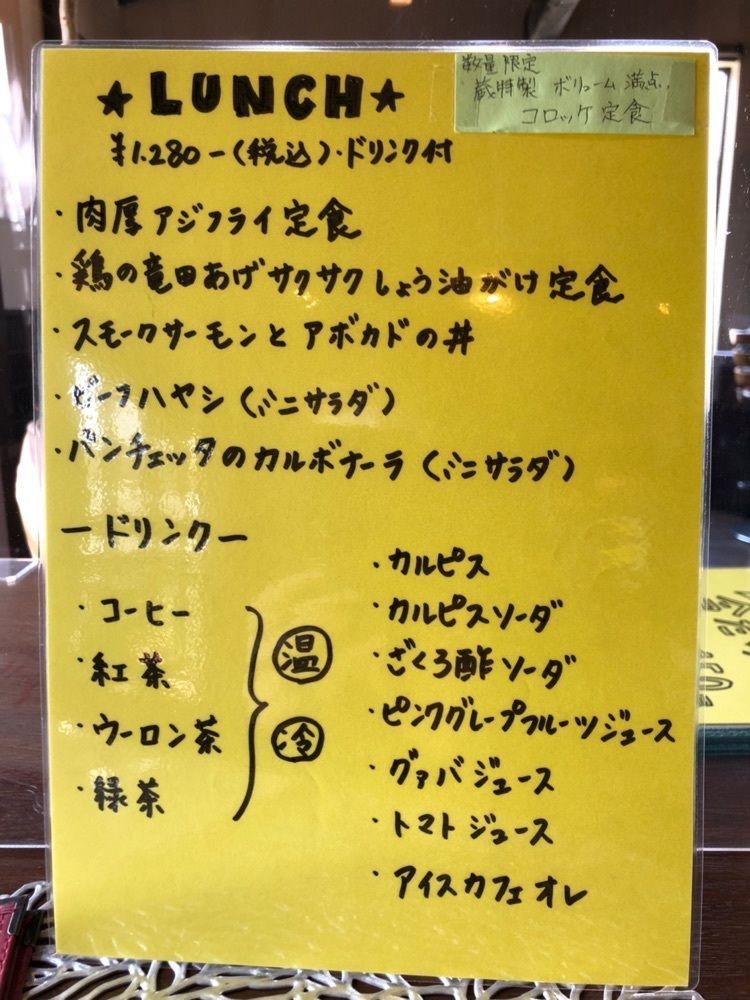 ★LUNCH★
数量限定
蔵特製 ボリューム満点、
コロッケ定食
¥1.280-(税込)・ドリンク付
・肉厚アジフライ定食
・鶏の竜田あげサクサクしょう油がけ定食
・スモークサーモンとアボカドの丼
・ビーフハヤシ(ミニサラダ)
・パンチェッタのカルボナーラ(ミニサラダ)
ードリンクー
・コーヒー
・紅茶
・ウーロン茶
・緑茶
温
冷
・カルピス
・カルピスソーダ
・ざくろ酢ソーダ
・ピンクグレープフルーツジュース
・グァバジュース
・トマトジュース
・アイスカフェオレ